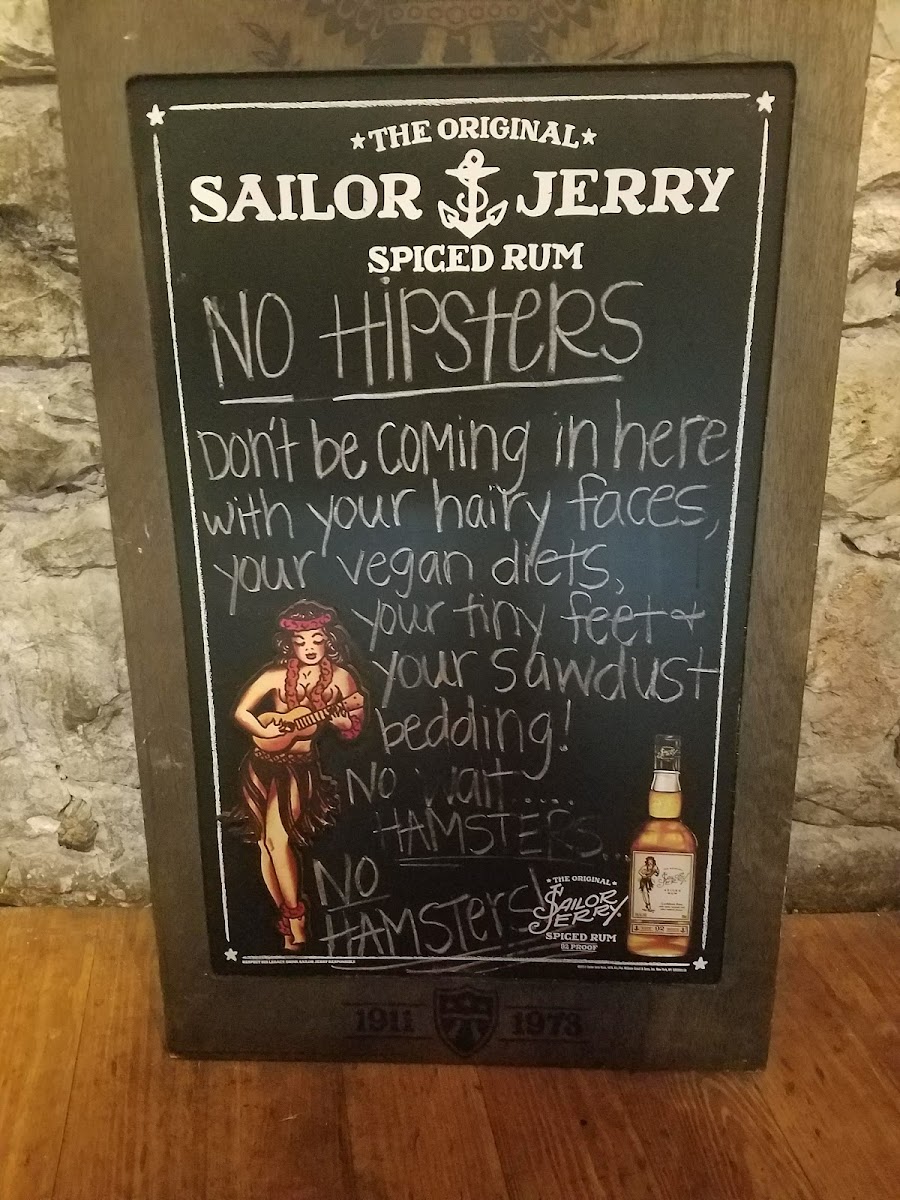 ★THE ORIGINAL★
SAILOR JERRY
SPICED RUM
NO HIPSTERS
DON'T be COMING in here
with your hairy faces,
your vegan diets,
your tiny feet +
your sawdust
bedding!
NO wait.....
HAMSTERS...
NO
HAMSTERS!
★THE ORIGINAL★
SAILOR JERRY
SPICED RUM
92 PROOF
1911 1973